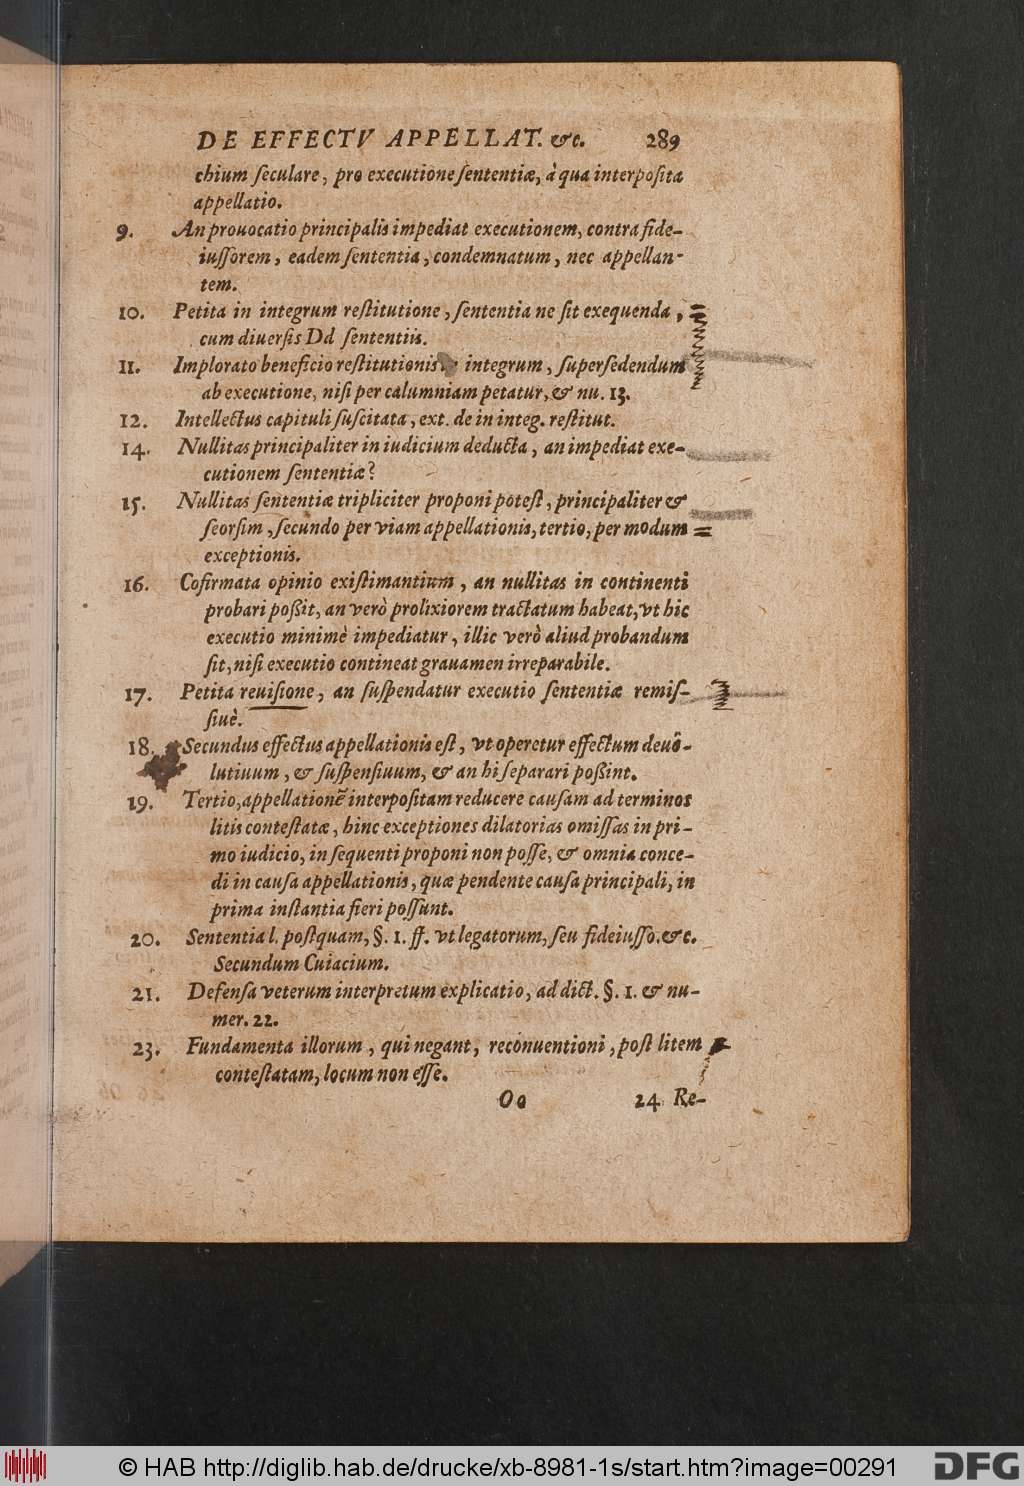 DE EFFECTV APPELLAT. &c. 289
chium ſeculare, pro executione ſententiæ, à qua interpoſita
appellatio.
9. An prouocatio principalis impediat executionem, contra fide-
iuſſorem, eadem ſententia, condemnatum, nec appellan-
tem.
10. Petita in integrum reſtitutione, ſententia ne ſit exequenda,
cum diuerſis Dd ſententiis.
11. Implorato beneficio reſtitutionis integrum, ſuperſedendum
ab executione, niſi per calumniam petatur, & nu. 13.
12. Intellectus capituli ſuſcitata, ext. de in integ. reſtitut.
14. Nullitas principaliter in iudicium deducta, an impediat exe-
cutionem ſententiæ?
15. Nullitas ſententiæ tripliciter proponi poteſt, principaliter &
ſeorſim, ſecundo per viam appellationis, tertio, per modum
exceptionis.
16. Cofirmata opinio exiſtimantium, an nullitas in continenti
probari poßit, an verò prolixiorem tractatum habeat, vt hic
executio minimè impediatur, illic verò aliud probandum
ſit, niſi executio contineat grauamen irreparabile.
17. Petita reuiſione, an ſuſpendatur executio ſententiæ remiſ-
ſiuè.
18. Secundus effectus appellationis eſt, vt operetur effectum deuo-
lutiuum, & ſuſpenſiuum, & an hi ſeparari poßint.
19. Tertio, appellationẽ interpoſitam reducere cauſam ad terminos
litis conteſtatæ, hinc exceptiones dilatorias omiſſas in pri-
mo iudicio, in ſequenti proponi non poſſe, & omnia conce-
di in cauſa appellationis, quæ pendente cauſa principali, in
prima inſtantia fieri poſſunt.
20. Sententia l. poſtquam, §. 1. ff. vt legatorum, ſeu fideiuſſo. &c.
Secundum Cuiacium.
21. Defenſa veterum interpretum explicatio, ad dict. §. 1. & nu-
mer. 22.
23. Fundamenta illorum, qui negant, reconuentioni, poſt litem
conteſtatam, locum non eſſe.
Oo 24 Re-
© HAB http://diglib.hab.de/drucke/xb-8981-1s/start.htm?image=00291 DFG